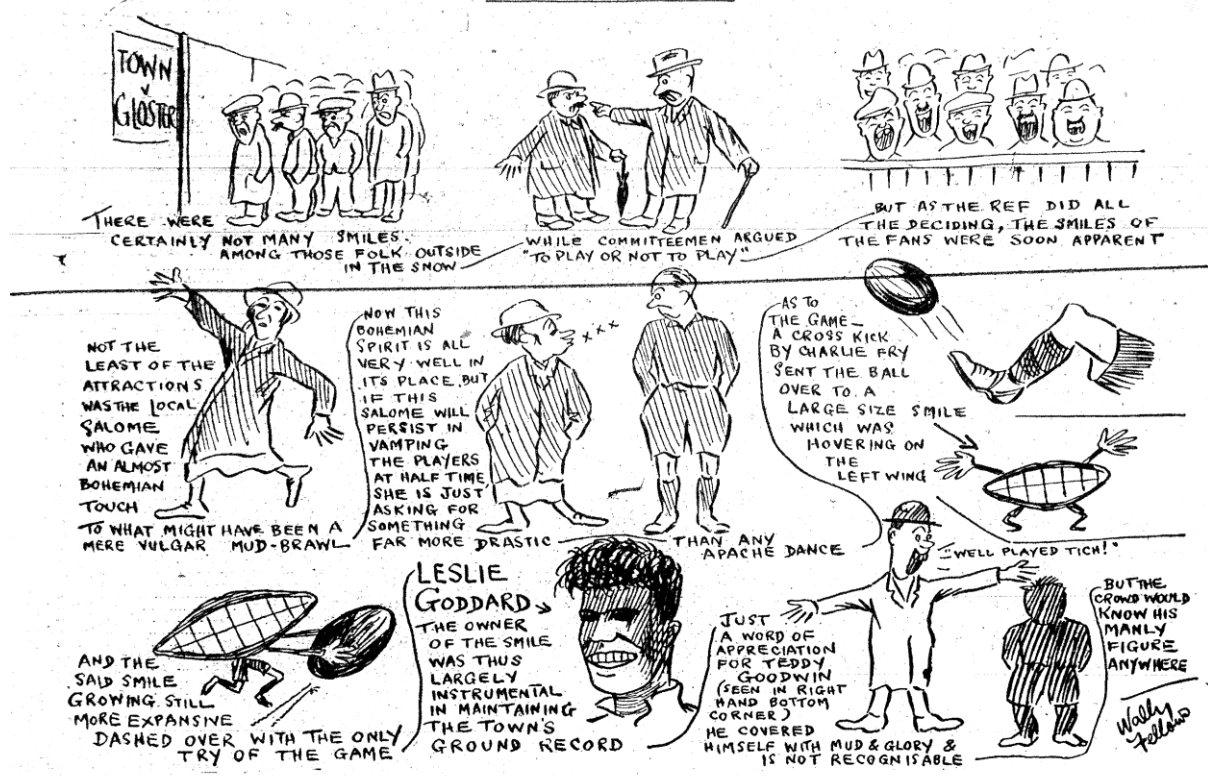 TOWN
V
GLOSTER
THERE WERE
CERTAINLY NOT MANY SMILES.
AMONG THOSE FOLK OUTSIDE
IN THE SNOW
WHILE COMMITTEEMEN ARGUED
"TO PLAY OR NOT TO PLAY"
BUT AS THE REF DID ALL
THE DECIDING, THE SMILES OF
THE FANS WERE SOON APPARENT
NOT THE
LEAST OF THE
ATTRACTIONS
WAS THE LOCAL
SALOME
WHO GAVE
AN ALMOST
BOHEMIAN
TOUCH
TO WHAT MIGHT HAVE BEEN A
MERE VULGAR MUD-BRAWL
NOW THIS
BOHEMIAN
SPIRIT IS ALL
VERY WELL IN
ITS PLACE, BUT
IF THIS
SALOME WILL
PERSIST IN
VAMPING
THE PLAYERS
AT HALF TIME
SHE IS JUST
ASKING FOR
SOMETHING
FAR MORE DRASTIC
x x x
THAN ANY
APACHE DANCE
AS TO
THE GAME —
A CROSS KICK
BY CHARLIE FRY
SENT THE BALL
OVER TO A
LARGE SIZE SMILE
WHICH WAS
HOVERING ON
THE
LEFT WING
AND THE
SAID SMILE
GROWING STILL
MORE EXPANSIVE
DASHED OVER WITH THE ONLY
TRY OF THE GAME
LESLIE
GODDARD
THE OWNER
OF THE SMILE
WAS THUS
LARGELY
INSTRUMENTAL
IN MAINTAINING
THE TOWN'S
GROUND RECORD
JUST
A WORD OF
APPRECIATION
FOR TEDDY
GOODWIN
(SEEN IN RIGHT
HAND BOTTOM
CORNER)
HE COVERED
HIMSELF WITH MUD & GLORY &
IS NOT RECOGNISABLE
"WELL PLAYED TICH!"
BUT THE
CROWD WOULD
KNOW HIS
MANLY
FIGURE
ANYWHERE
Wally
Fellows